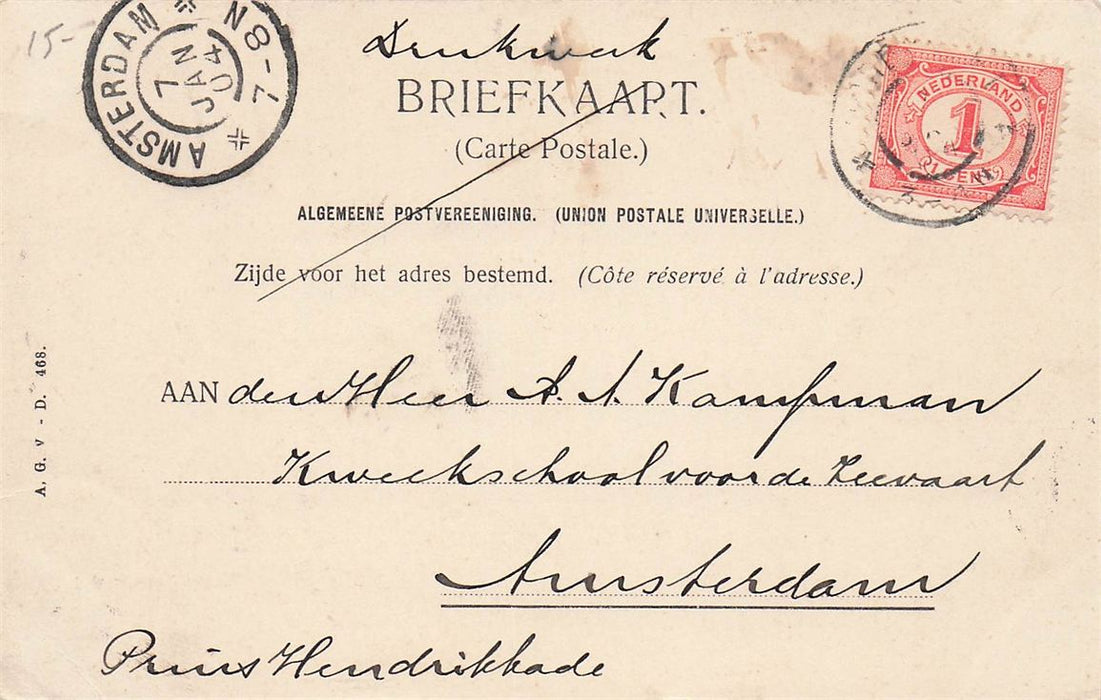 15-
AMSTERDAM
7
JAN
04
7-8N
Drukwerk
BRIEFKAART.
(Carte Postale.)
NEDERLAND
1
CENT
ALGEMEENE POSTVEREENIGING. (UNION POSTALE UNIVERSELLE.)
Zijde voor het adres bestemd. (Côte réservé à l'adresse.)
A. G. V - D. 468.
AAN den Heer A. A. Kampman
Kweekschool voor de Zeevaart
Amsterdam
Prins Hendrikkade